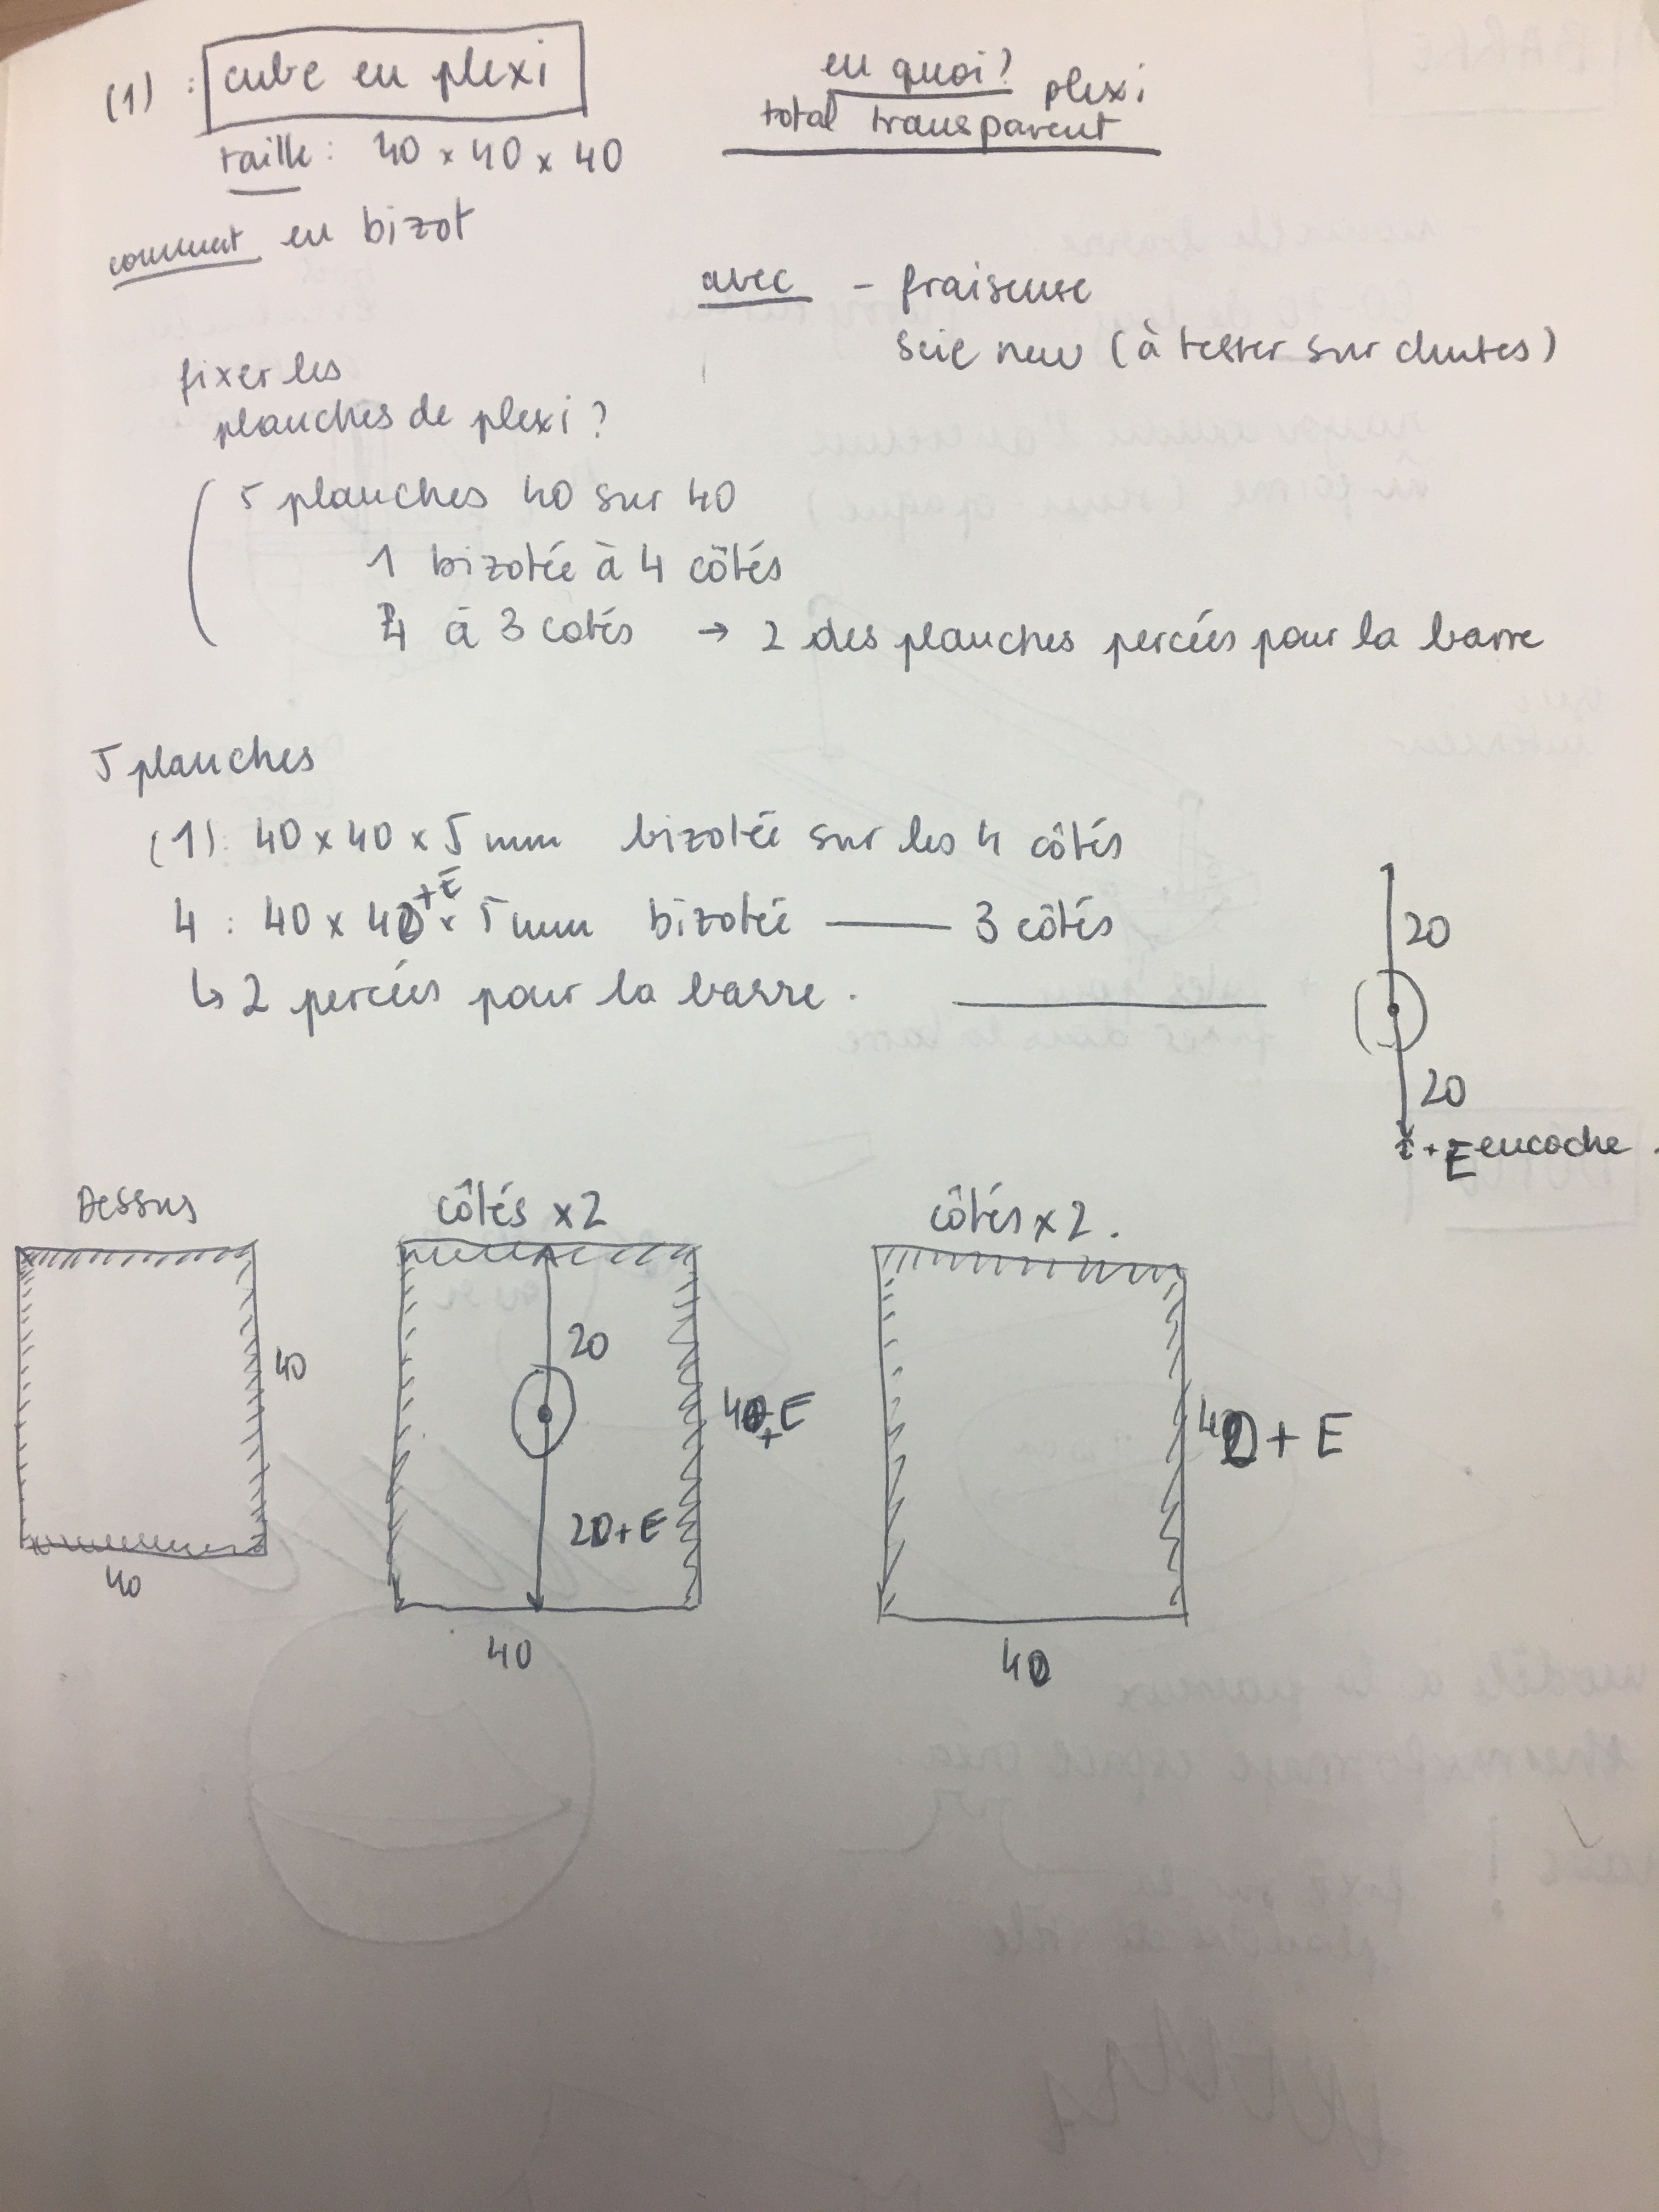 (1) : cube en plexi
en quoi? plexi
total transparent
taille : 40 x 40 x 40
comment en bizot
avec - fraiseuse
scie num (à tester sur chutes)
fixer les
planches de plexi?
5 planches 40 sur 40
1 bizotée à 4 côtés
4 à 3 cotés → 2 des planches percées pour la barre
5 planches
(1) : 40 x 40 x 5 mm bizotée sur les 4 côtés
4 : 40 x 40 +E x 5 mm bizotée — 3 côtés
↳ 2 percées pour la barre.
20
20
+ E encoche
Dessus
40
40
côtés x2
20
20+E
40+E
40
côtés x 2.
40 + E
40